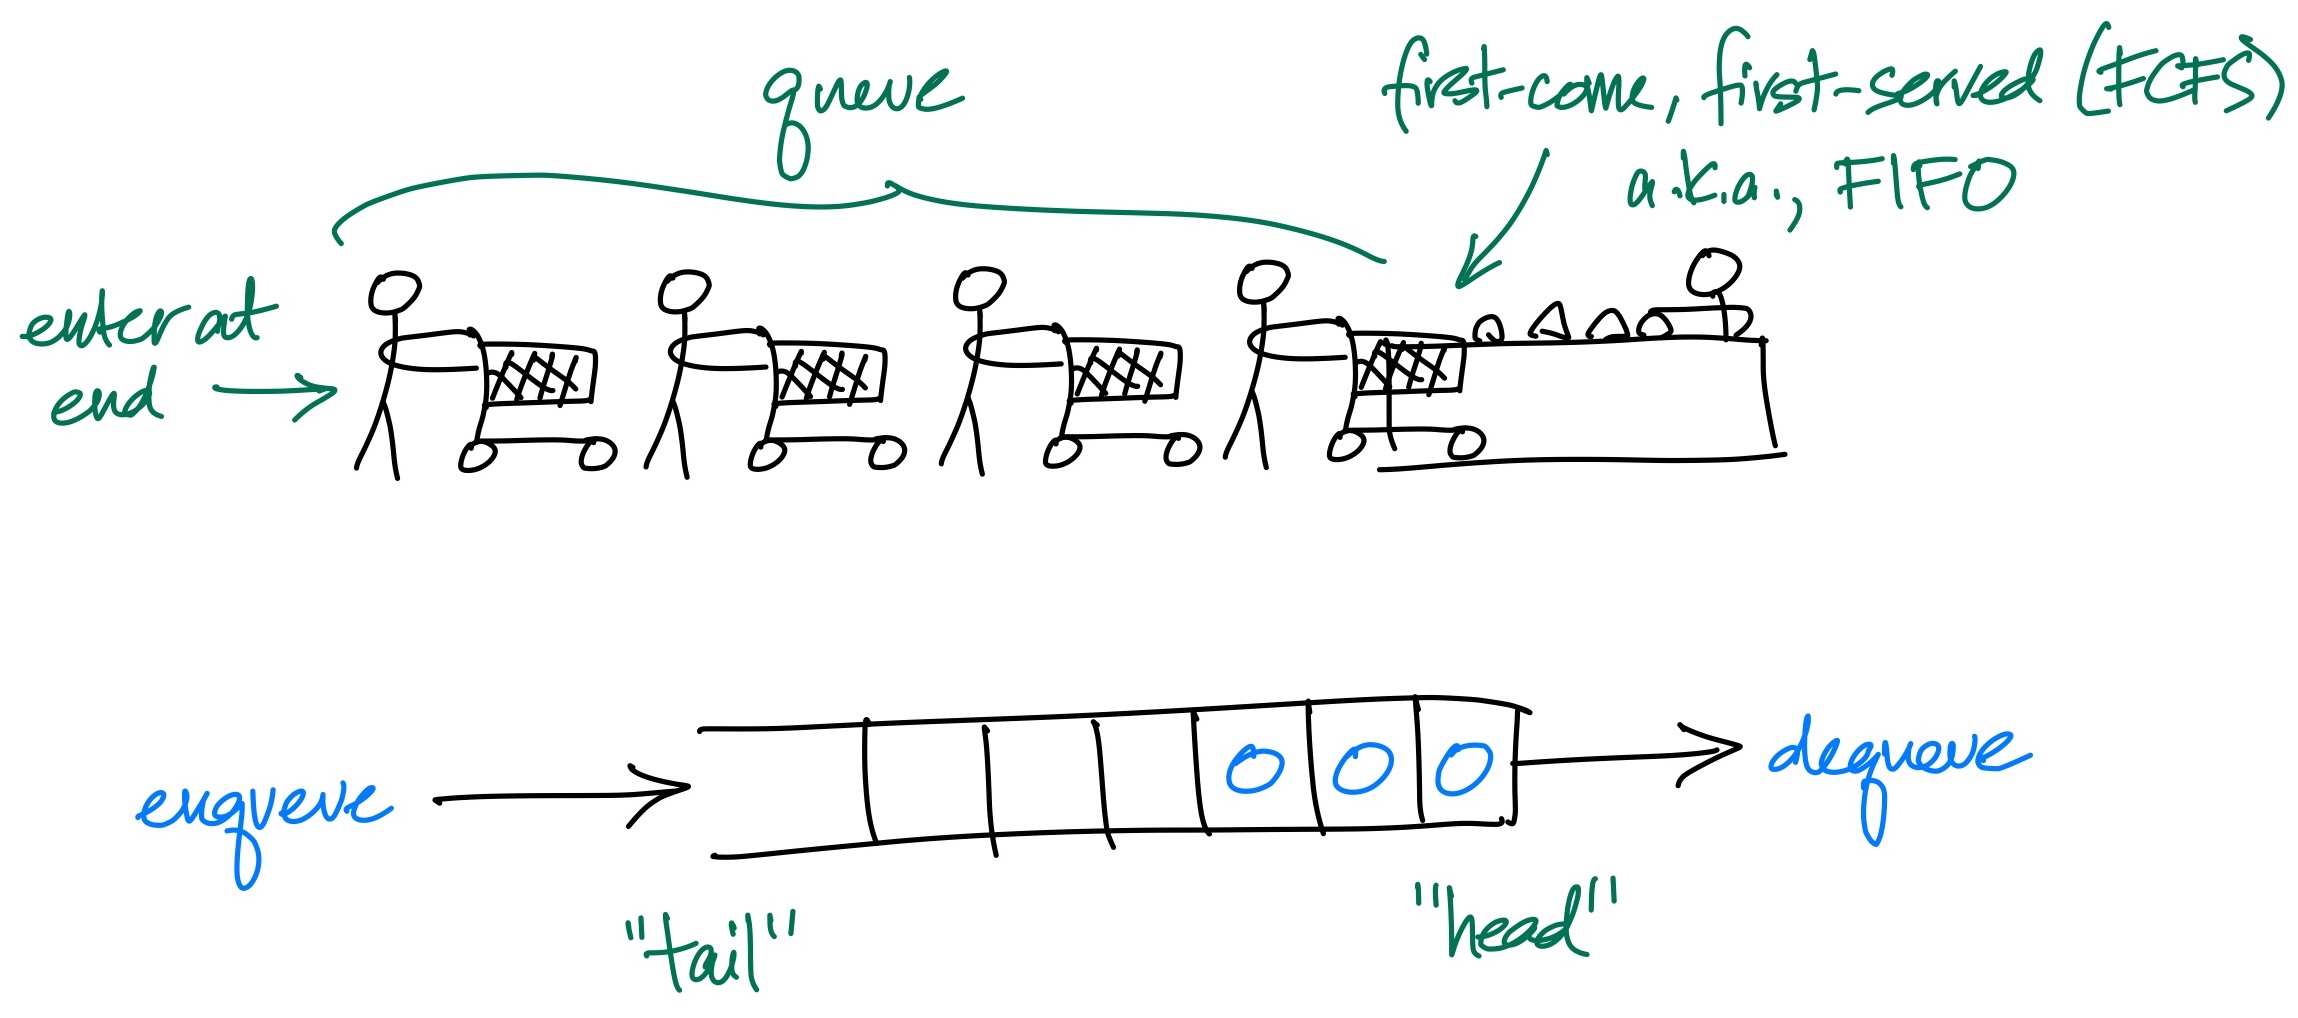 queue
first-come, first-served (FCFS)
a.k.a., FIFO
enter at
end
enqueue
dequeue
"tail"
"head"